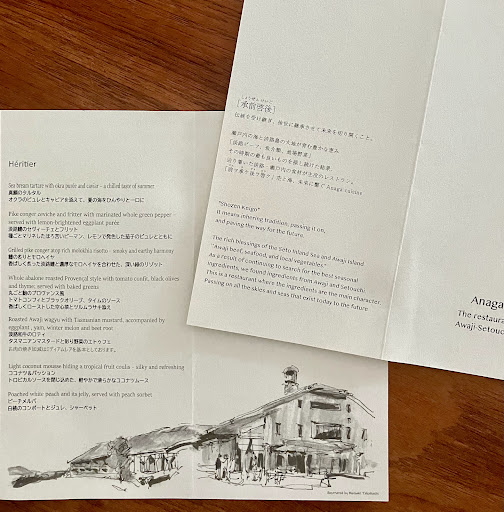 Héritier
Sea bream tartare with okra purée and caviar - a chilled taste of summer
真鯛のタルタル
オクラのピュレとキャビアを添えて、夏の海をひんやりと一口に
Pike conger ceviche and fritter with marinated whole green pepper -
served with lemon-brightened eggplant purée
淡路鱧のセヴィーチェとフリット
種ごとマリネしたまる古いピーマン、レモンで発色した茄子のピュレとともに
Grilled pike conger atop rich molokhia risotto - smoky and earthy harmony
鱧の炙りとモロヘイヤ
香ばしく炙った淡路鱧と濃厚なモロヘイヤを合わせた、深い緑のリゾット
Whole abalone roasted Provençal style with tomato confit, black olives
and thyme, served with baked greens
丸ごと鮑のプロヴァンス風
トマトコンフィとブラックオリーブ、タイムのソース
香ばしくローストした
Roasted Awaji wagyu with Tasmanian mustard, accompanied by
eggplant, yam, winter melon and beet root
淡路和牛のロティ
タスマニアンマスタードと彩り野菜のエトゥフェ
お肉の焼き加減はミディアムレアを基本としております。
Light coconut mousse hiding a tropical fruit coulis - silky and refreshing
ココナツ&パッション
トロピカルソースを閉じ込めた、軽やかで滑らかなココナツムース
Poached white peach and its jelly, served with peach sorbet
ピーチメルバ
白桃のコンポートとジュレ、シャーベット
Illustrated by
しょうぜんけいご
[承前啓後]
伝統を受け継ぎ、後世に継承させて未来を切り開くこと。
瀬戸内の海と淡路島の大地が育む豊かな恵み
「淡路ビーフ、魚介類、島野菜」
その時期の最も良いものを探し続けた結果、
辿り着いた淡路・瀬戸内の食材が主役のレストラン。
Anaga cuisine
"Shozen Keigo"
It means inhering tradition, passing it on,
and paving the way for the future.
The rich blessings of the Seto Inland Sea and Awaji island
"Awaji beef, seafood, and local vegetables"
As a result of continuing to search for the best seasonal
ingredients, we found ingredients from Awaji and Setouchi.
This is a restaurant where the ingredients are the main character.
Passing on all the skies and seas that exist today to the future
Anaga
The restaura
Awaji-Setouc